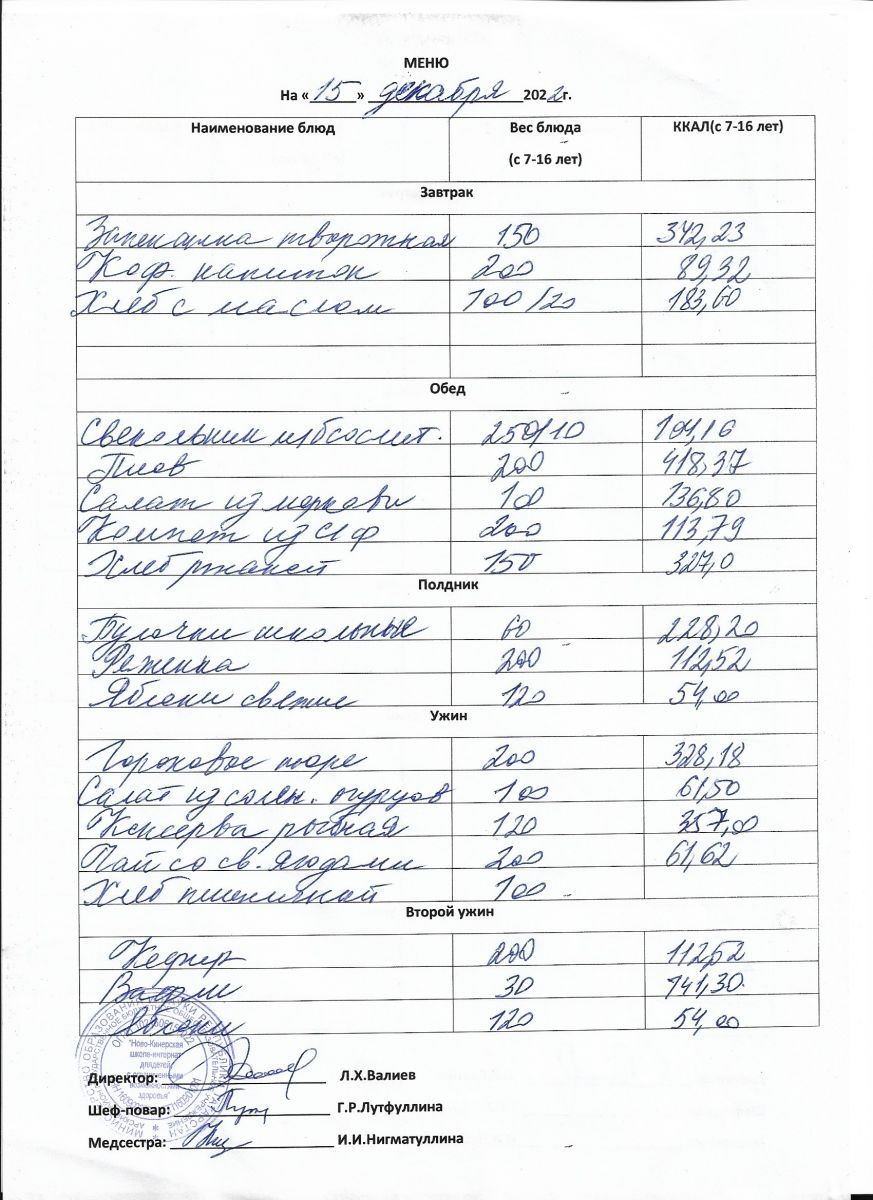 МЕНЮ
На « 15 » декабря 2022г.
Наименование блюд Вес блюда (с 7-16 лет) ККАЛ(с 7-16 лет)
Завтрак
Запеканка творожная 150 342,23
Коф. напиток 200 89,32
Хлеб с маслом 100/20 183,60
Обед
Свекольник м/бсосмет. 250/10 104,16
Плов 200 418,37
Салат из моркови 100 136,80
Компот из С/Ф 200 113,79
Хлеб ржаной 150 327,0
Полдник
Булочки школьные 60 228,20
Реженка 200 112,52
Яблоки свежие 120 54,00
Ужин
Гороховое пюре 200 328,18
Салат из солен. огурцов 100 61,50
Консерва рыбная 120 357,00
Чай со св. ягодами 200 61,62
Хлеб пшеничной 100
Второй ужин
Кефир 200 112,52
Вафли 30 141,30
Яблоки 120 54,00
"Ново-Кинерская
школа-интернат
для детей
с ограниченными
возможностями
здоровья"
Директор: Л.Х.Валиев
Шеф-повар: Г.Р.Лутфуллина
Медсестра: И.И.Нигматуллина